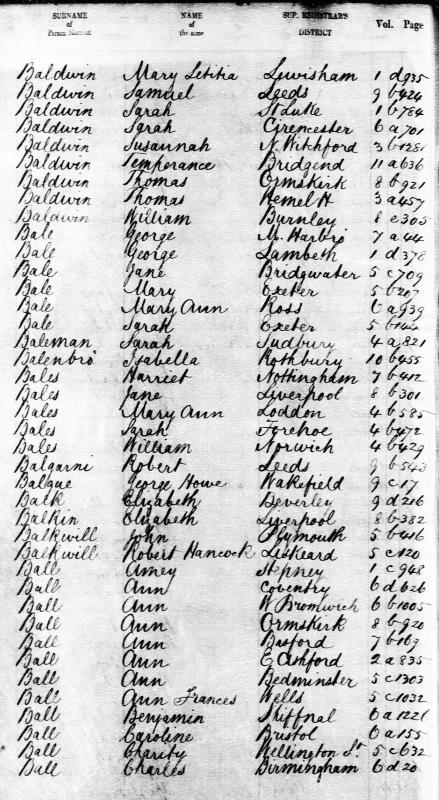 SURNAME of Person Married NAME of the same SUP. REGISTRAR'S DISTRICT Vol. Page
Baldwin Mary Letitia Lewisham 1 d 935
Baldwin Samuel Leeds 9 b 424
Baldwin Sarah St Luke 1 b 784
Baldwin Sarah Cirencester 6 a 701
Baldwin Susannah N. Witchford 3 b 1281
Baldwin Temperance Bridgend 11 a 636
Baldwin Thomas Ormskirk 8 b 921
Baldwin Thomas Hemel H 3 a 457
Baldwin William Burnley 8 e 305
Bale George M. Harbro 7 a 44
Bale George Lambeth 1 d 378
Bale Jane Bridgwater 5 c 709
Bale Mary Exeter 5 b 207
Bale Mary Ann Ross 6 a 939
Bale Sarah Exeter 5 b 144
Baleman Sarah Sudbury 4 a 821
Balenbro Isabella Rothbury 10 b 455
Bales Harriet Nottingham 7 b 412
Bales Jane Liverpool 8 b 301
Bales Mary Ann Loddon 4 b 585
Bales Sarah Forehoe 4 b 472
Bales William Norwich 4 b 429
Balgarni Robert Leeds 9 b 543
Balgue George Howe Wakefield 9 c 17
Balk Elizabeth Beverley 9 d 216
Balkin Elizabeth Liverpool 8 b 382
Balkwill John Plymouth 5 b 416
Balkwill Robert Hancock Liskeard 5 c 120
Ball Amey Stepney 1 c 948
Ball Ann Coventry 6 d 626
Ball Ann W Bromwich 6 b 1005
Ball Ann Ormskirk 8 b 920
Ball Ann Basford 7 b 169
Ball Ann E Ashford 2 a 835
Ball Ann Bedminster 5 c 1303
Ball Ann Frances Wells 5 c 1032
Ball Benjamin Shiffnal 6 a 1221
Ball Caroline Bristol 6 a 155
Ball Charity Wellington St. 5 c 632
Ball Charles Birmingham 6 d 20